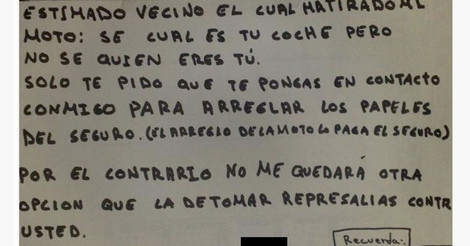 ESTIMADO VECINO EL CUAL HA TIRADO MI
MOTO: SE CUAL ES TU COCHE PERO
NO SE QUIEN ERES TÚ.
SOLO TE PIDO QUE TE PONGAS EN CONTACTO
CONMIGO PARA ARREGLAR LOS PAPELES
DEL SEGURO. (EL ARREGLO DE LA MOTO LO PAGA EL SEGURO)
POR EL CONTRARIO NO ME QUEDARÁ OTRA
OPCION QUE LA DE TOMAR REPRESALIAS CONTR
USTED.
Recuerda: